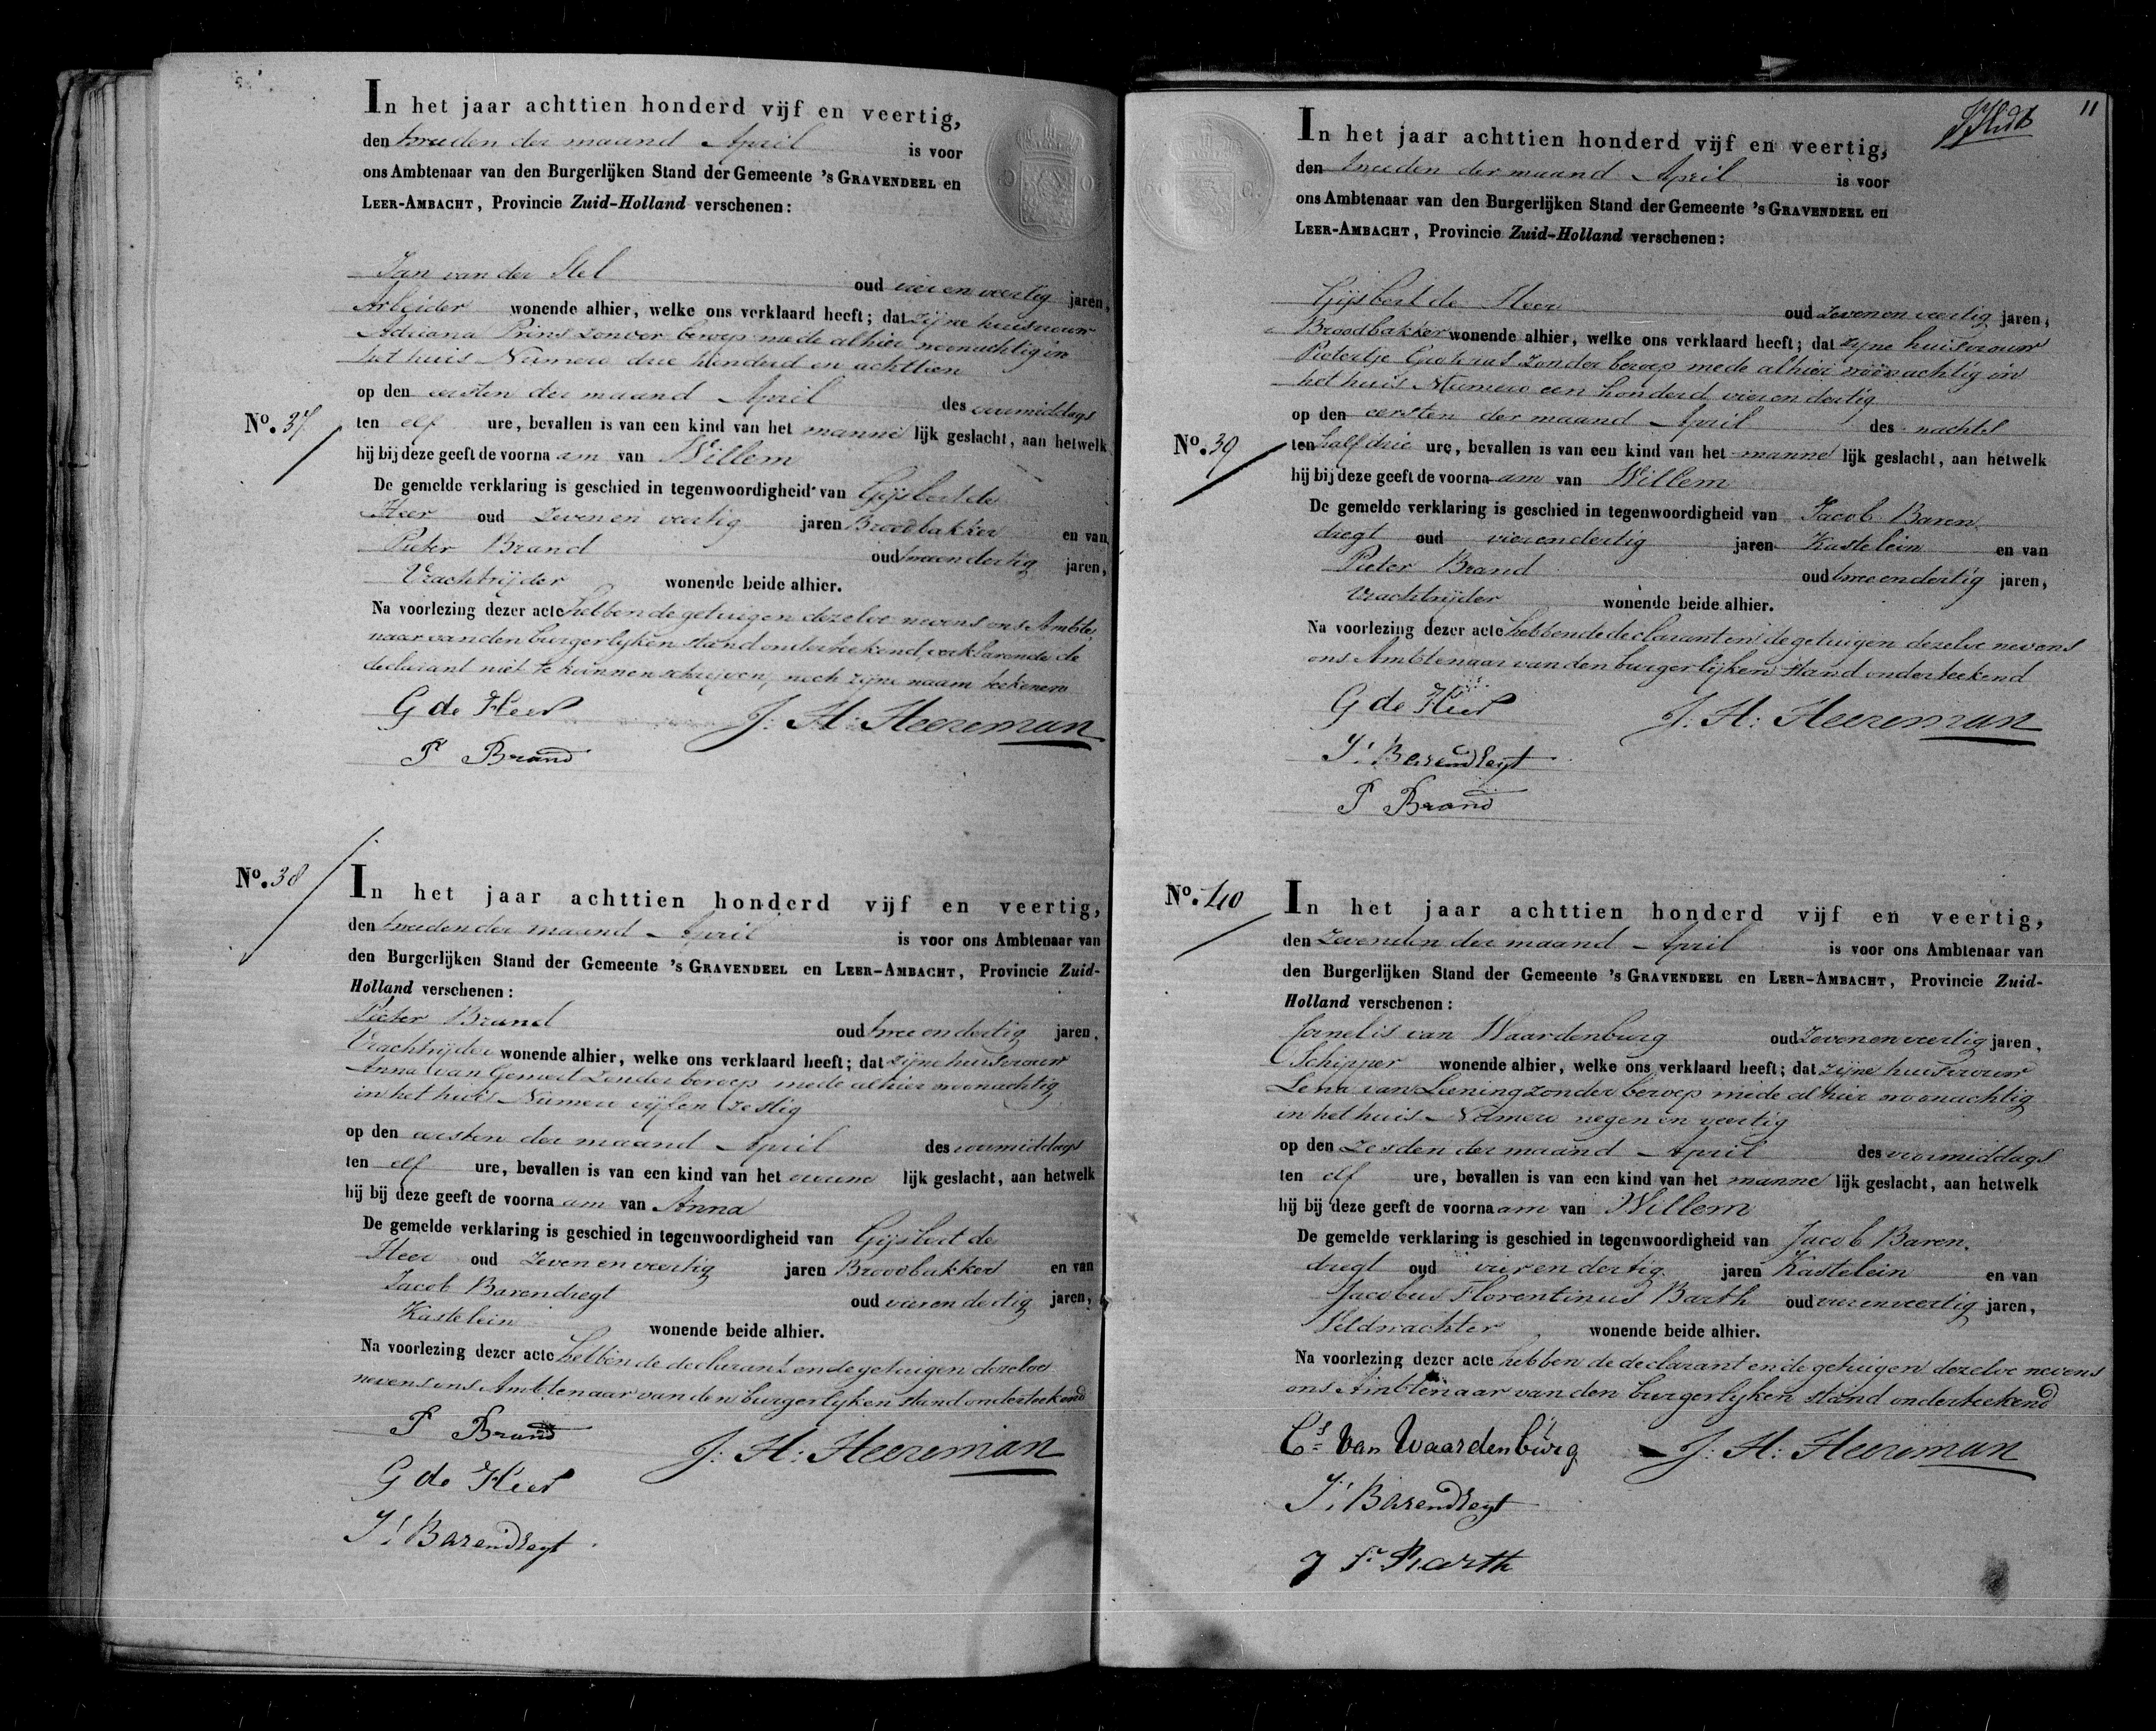 In het jaar achttien honderd vijf en veertig,
den tweeden der maand April is voor
ons Ambtenaar van den Burgerlijken Stand der Gemeente 's GRAVENDEEL en
LEER-AMBACHT, Provincie Zuid-Holland verschenen:
Jan van der Stel oud vier en veertig jaren,
Arbeider wonende alhier, welke ons verklaard heeft; dat zijne huisvrouw
Adriana Prins zonder beroep mede alhier woonachtig in
het huis Numero drie honderd en achttien
op den eersten der maand April des voormiddags
No. 37 ten elf ure, bevallen is van een kind van het manne lijk geslacht, aan hetwelk
hij bij deze geeft de voorna am van Willem
De gemelde verklaring is geschied in tegenwoordigheid van Gijsbert de
Heer oud zeven en veertig jaren Broodbakker en van
Pieter Brand oud twee en dertig jaren,
Vrachtrijder wonende beide alhier.
Na voorlezing dezer acte hebben de getuigen dezelve nevens ons Ambte
naar van den burgerlijken stand onderteekend, verklarende de
declarant niet te kunnen schrijven, noch zijne naam teekenen
G de Heer J: H: Heereman
P Brand
No. 38 In het jaar achttien honderd vijf en veertig,
den tweeden der maand April is voor ons Ambtenaar van
den Burgerlijken Stand der Gemeente 's GRAVENDEEL en LEER-AMBACHT, Provincie Zuid-
Holland verschenen:
Pieter Brand oud twee en dertig jaren,
Vrachtrijder wonende alhier, welke ons verklaard heeft; dat zijne huisvrouw
Anna van Gemert zonder beroep mede alhier woonachtig
in het huis Numero vijf en zestig
op den eersten der maand April des voormiddags
ten elf ure, bevallen is van een kind van het vrouwe lijk geslacht, aan hetwelk
hij bij deze geeft de voorna am van Anna
De gemelde verklaring is geschied in tegenwoordigheid van Gijsbert de
Heer oud zeven en veertig jaren Broodbakker en van
Jacob Barendregt oud vier en dertig jaren,
Kastelein wonende beide alhier.
Na voorlezing dezer acte hebben de declarant en de getuigen dezelve
nevens ons Ambtenaar van den burgerlijken stand onderteekend
P Brand
G de Heer J: H: Heereman
J: Barendregt
11
In het jaar achttien honderd vijf en veertig,
den tweeden der maand April is voor
ons Ambtenaar van den Burgerlijken Stand der Gemeente 's GRAVENDEEL en
LEER-AMBACHT, Provincie Zuid-Holland verschenen:
Gijsbert de Heer oud zeven en veertig jaren,
Broodbakker wonende alhier, welke ons verklaard heeft; dat zijne huisvrouw
Pietertje zonder beroep mede alhier woonachtig in
het huis Numero een honderd vier en dertig
op den eersten der maand April des nachts
No. 39 ten half drie ure, bevallen is van een kind van het manne lijk geslacht, aan hetwelk
hij bij deze geeft de voorna am van Willem
De gemelde verklaring is geschied in tegenwoordigheid van Jacob Baren
dregt oud vier en dertig jaren Kastelein en van
Pieter Brand oud twee en dertig jaren,
Vrachtrijder wonende beide alhier.
Na voorlezing dezer acte hebben de declarant en de getuigen dezelve nevens
ons Ambtenaar van den burgerlijken stand onderteekend
G de Heer J: H: Heereman
J: Barendregt
P Brand
No. 40 In het jaar achttien honderd vijf en veertig,
den zevenden der maand April is voor ons Ambtenaar van
den Burgerlijken Stand der Gemeente 's GRAVENDEEL en LEER-AMBACHT, Provincie Zuid-
Holland verschenen:
Cornelis van Waardenburg oud zeven en veertig jaren,
Schipper wonende alhier, welke ons verklaard heeft; dat zijne huisvrouw
Lena van Leening zonder beroep mede alhier woonachtig
in het huis Numero negen en veertig
op den zesden der maand April des voormiddags
ten elf ure, bevallen is van een kind van het manne lijk geslacht, aan hetwelk
hij bij deze geeft de voorna am van Willem
De gemelde verklaring is geschied in tegenwoordigheid van Jacob Baren
dregt oud vier en dertig jaren Kastelein en van
Jacobus Florentinus Barth oud vier en veertig jaren,
Veldwachter wonende beide alhier.
Na voorlezing dezer acte hebben de declarant en de getuigen dezelve nevens
ons Ambtenaar van den burgerlijken stand onderteekend
Cs van Waardenburg J: H: Heereman
J: Barendregt
J F Barth